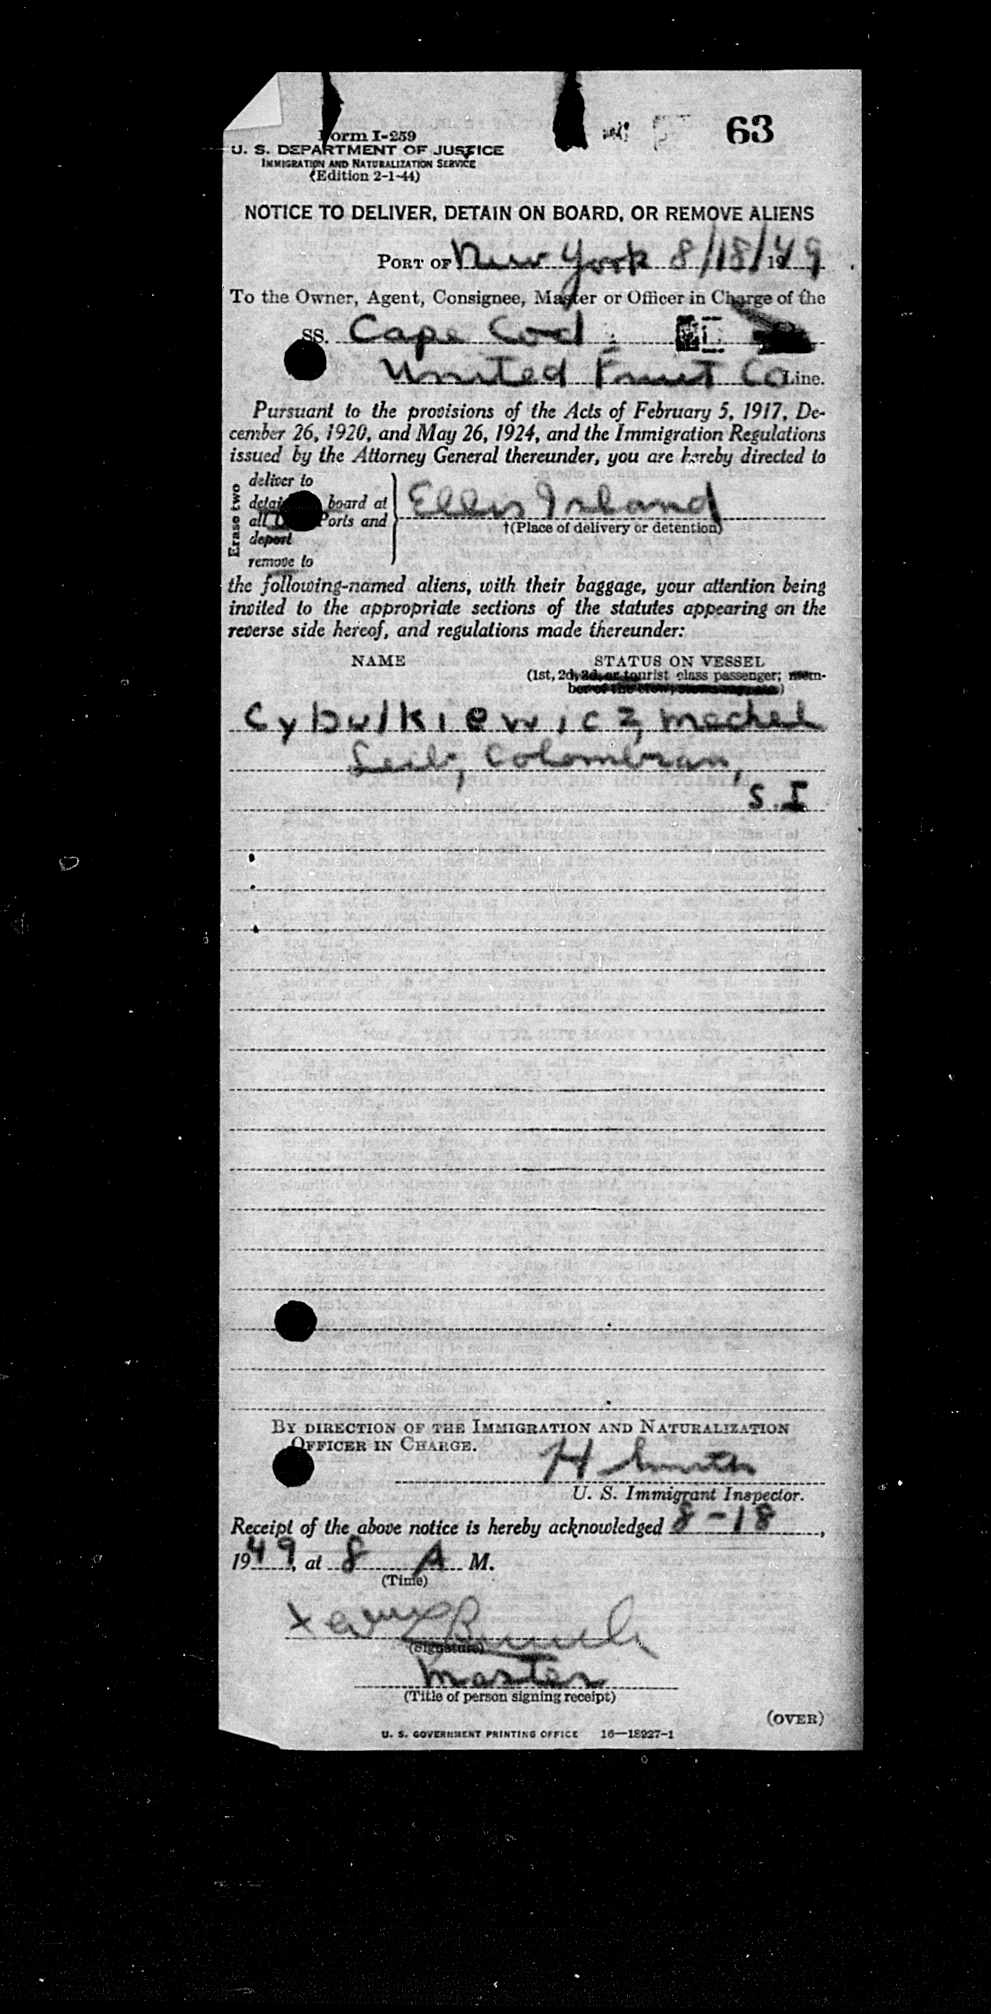 63
Form I-259
U. S. DEPARTMENT OF JUSTICE
IMMIGRATION AND NATURALIZATION SERVICE
(Edition 2-1-44)
NOTICE TO DELIVER, DETAIN ON BOARD, OR REMOVE ALIENS
PORT OF New York 8/18/1949
To the Owner, Agent, Consignee, Master or Officer in Charge of the
SS. Cape Cod
United Fruit Co Line.
Pursuant to the provisions of the Acts of February 5, 1917, De-
cember 26, 1920, and May 26, 1924, and the Immigration Regulations
issued by the Attorney General thereunder, you are hereby directed to
Erase two
deliver to
board at
all Ports and
deport
remove to
Ellis Island
†(Place of delivery or detention)
the following-named aliens, with their baggage, your attention being
invited to the appropriate sections of the statutes appearing on the
reverse side hereof, and regulations made thereunder:
NAME STATUS ON VESSEL
(1st, 2d, 3d, or tourist class passenger; mem-
ber of the crew,
Cybulkiewicz, Mechel
Leib, Colombian,
S. I
BY DIRECTION OF THE IMMIGRATION AND NATURALIZATION
OFFICER IN CHARGE.
H Smith
U. S. Immigrant Inspector.
Receipt of the above notice is hereby acknowledged 8-18,
1949, at 8 A M.
(Time)
(Signature)
Master
(Title of person signing receipt)
(OVER)
U. S. GOVERNMENT PRINTING OFFICE 16—18927-1